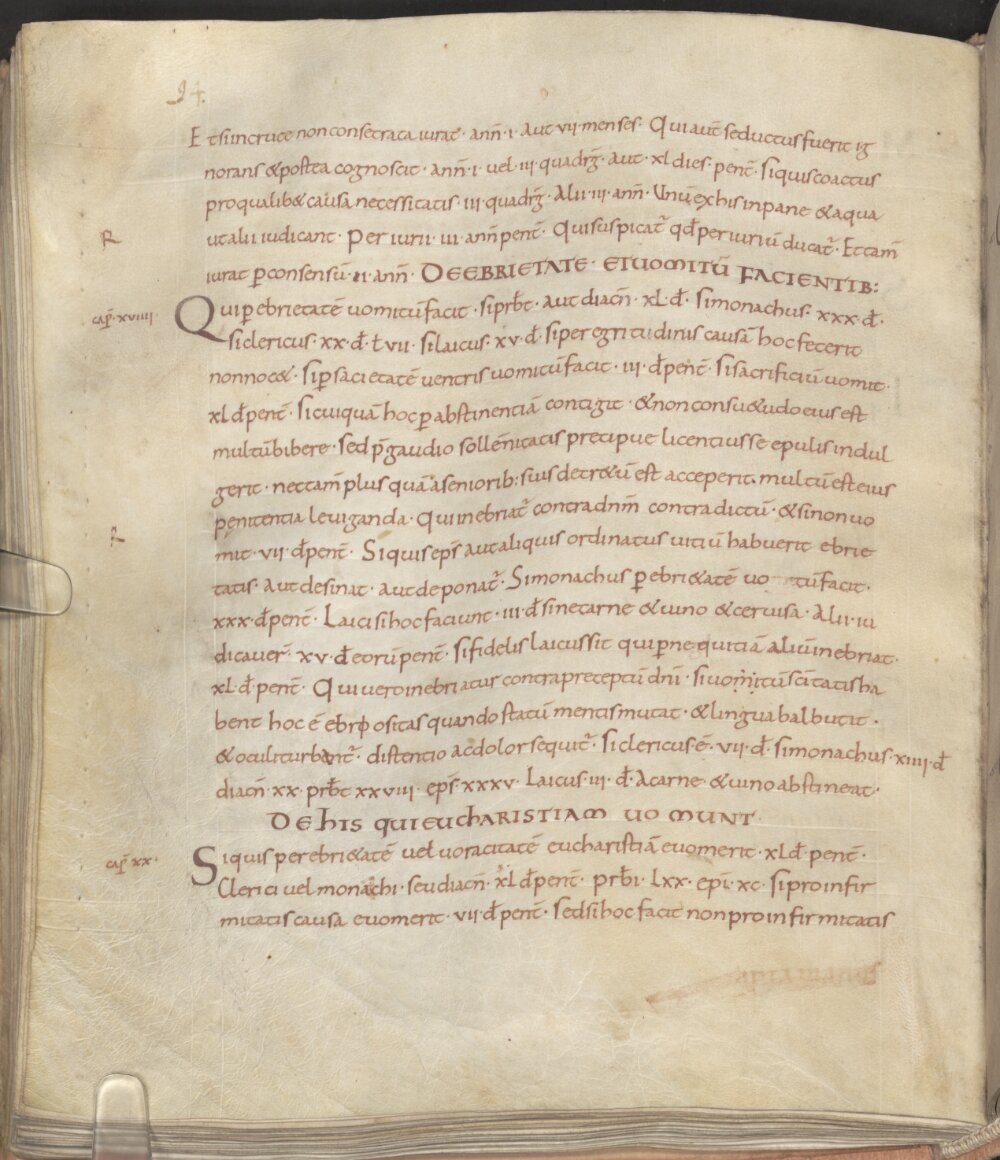 94.
Et si in cruce non consecrata iurat· anñ· i· Aut vii· menses· Qui aut̄ seductus fuerit ig
norans &postea cognoscit· anñ· i· uel· iii· quadrḡ· aut· xl dies· penit̄· Si quis coactus
pro qualib& causa necessitatis· iii· quadrḡ· Alii· iii· anñ· Unū ex his in pane &aqua
ut alii iudicant· Periurii· iii· anñ penit̄· Qui suspicat̄ qđ periuriū ducat̄· Et tam̄
R
iurat ꝑ consensū· ii· anñ· DE EBRIETATE· ET UOMITŪ FACIENTIB:
cap̄· xviiii·
Qui ꝑ ebrietatē uomitū facit· si prb̄t· aut diacñ· xl· đ· Si monachus· xxx· đ·
Si clericus· xx· đ· ł vii· si laicus· xv· đ· si per egritudinis causā hoc fecerit
non noc&· Si ꝑ sacietatē uentris uomitū facit· iii· đ penit̄· Si sacrificiū uomit·
xl đ penit̄· Si cuiquā hoc ꝑ abstinentiā contigit· &non consu&udo eius est
multū bibere· sed p̄ gaudio sollēnitatis precipue licentius se epulis indul
gerit· nec tam̄ plus quā a seniorib: suis decr&ū est acceperit· multū est eius
penitentia leuiganda· Qui inebriat̄ contra dnīm contradictū· &si non uo
R
mit· vii· đ penit̄· Si quis ep̄s aut aliquis ordinatus uitiū habuerit ebrie
tatis· aut desinat· aut deponat̄· Si monachus ꝑ ebri&atē uo tū facit·
xxx· đ penit̄· Laici si hoc faciunt· iii· đ sine carne &uino &ceruisa· Alii· iu
dicauer̄· xv· đ eorū penit̄· si fidelis laicus sit qui ꝑ nequitiā aliū inebriat·
xl· đ penit̄· Qui uero inebriatus contra preceptū dnī· si uomitū sc̄itatis ha
bent hoc ē ebriositas quando statū mentis mutat· &lingua balbutit·
&oculi turbent̄· distentio ac dolor sequit̄· Si clericus ē· vii· đ· si monachus· xiiii· đ
diacñ· xx· prb̄t xxviii· ep̄s· xxxv· Laicus· iii· đ· A carne &uino abstineat·
DE his qui eucharistiam uomunt·
cap̄ xx·
Si quis per ebri&atē uel uoracitatē eucharistiā euomerit· xl đ· penit̄·
Clerici uel monachi· seu diacñ· xl đ penit̄· prb̄i· lxx· ep̄i· xc· si pro infir
mitatis causa euomerit· vii· đ penit̄· sed si hoc facit non pro infirmitatis